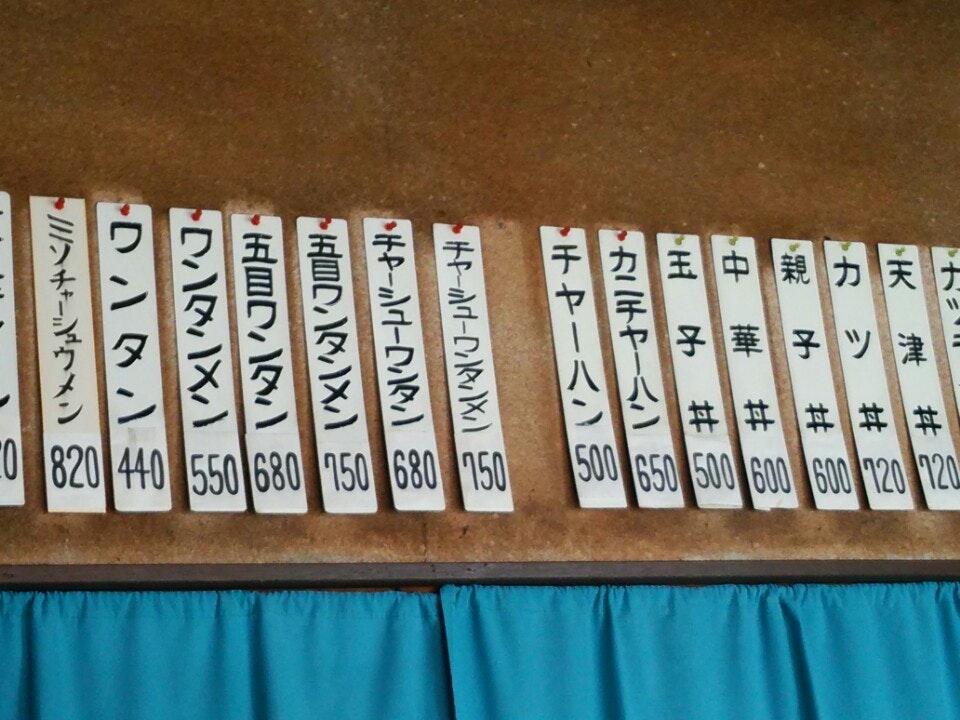 ミソチャーシュウメン
820
ワンタン
440
ワンタンメン
550
五目ワンタン
680
五目ワンタンメン
750
チャーシューワンタン
680
チャーシューワンタンメン
750
チャーハン
500
カニチャーハン
650
玉子丼
500
中華丼
600
親子丼
600
カツ丼
720
天津丼
720